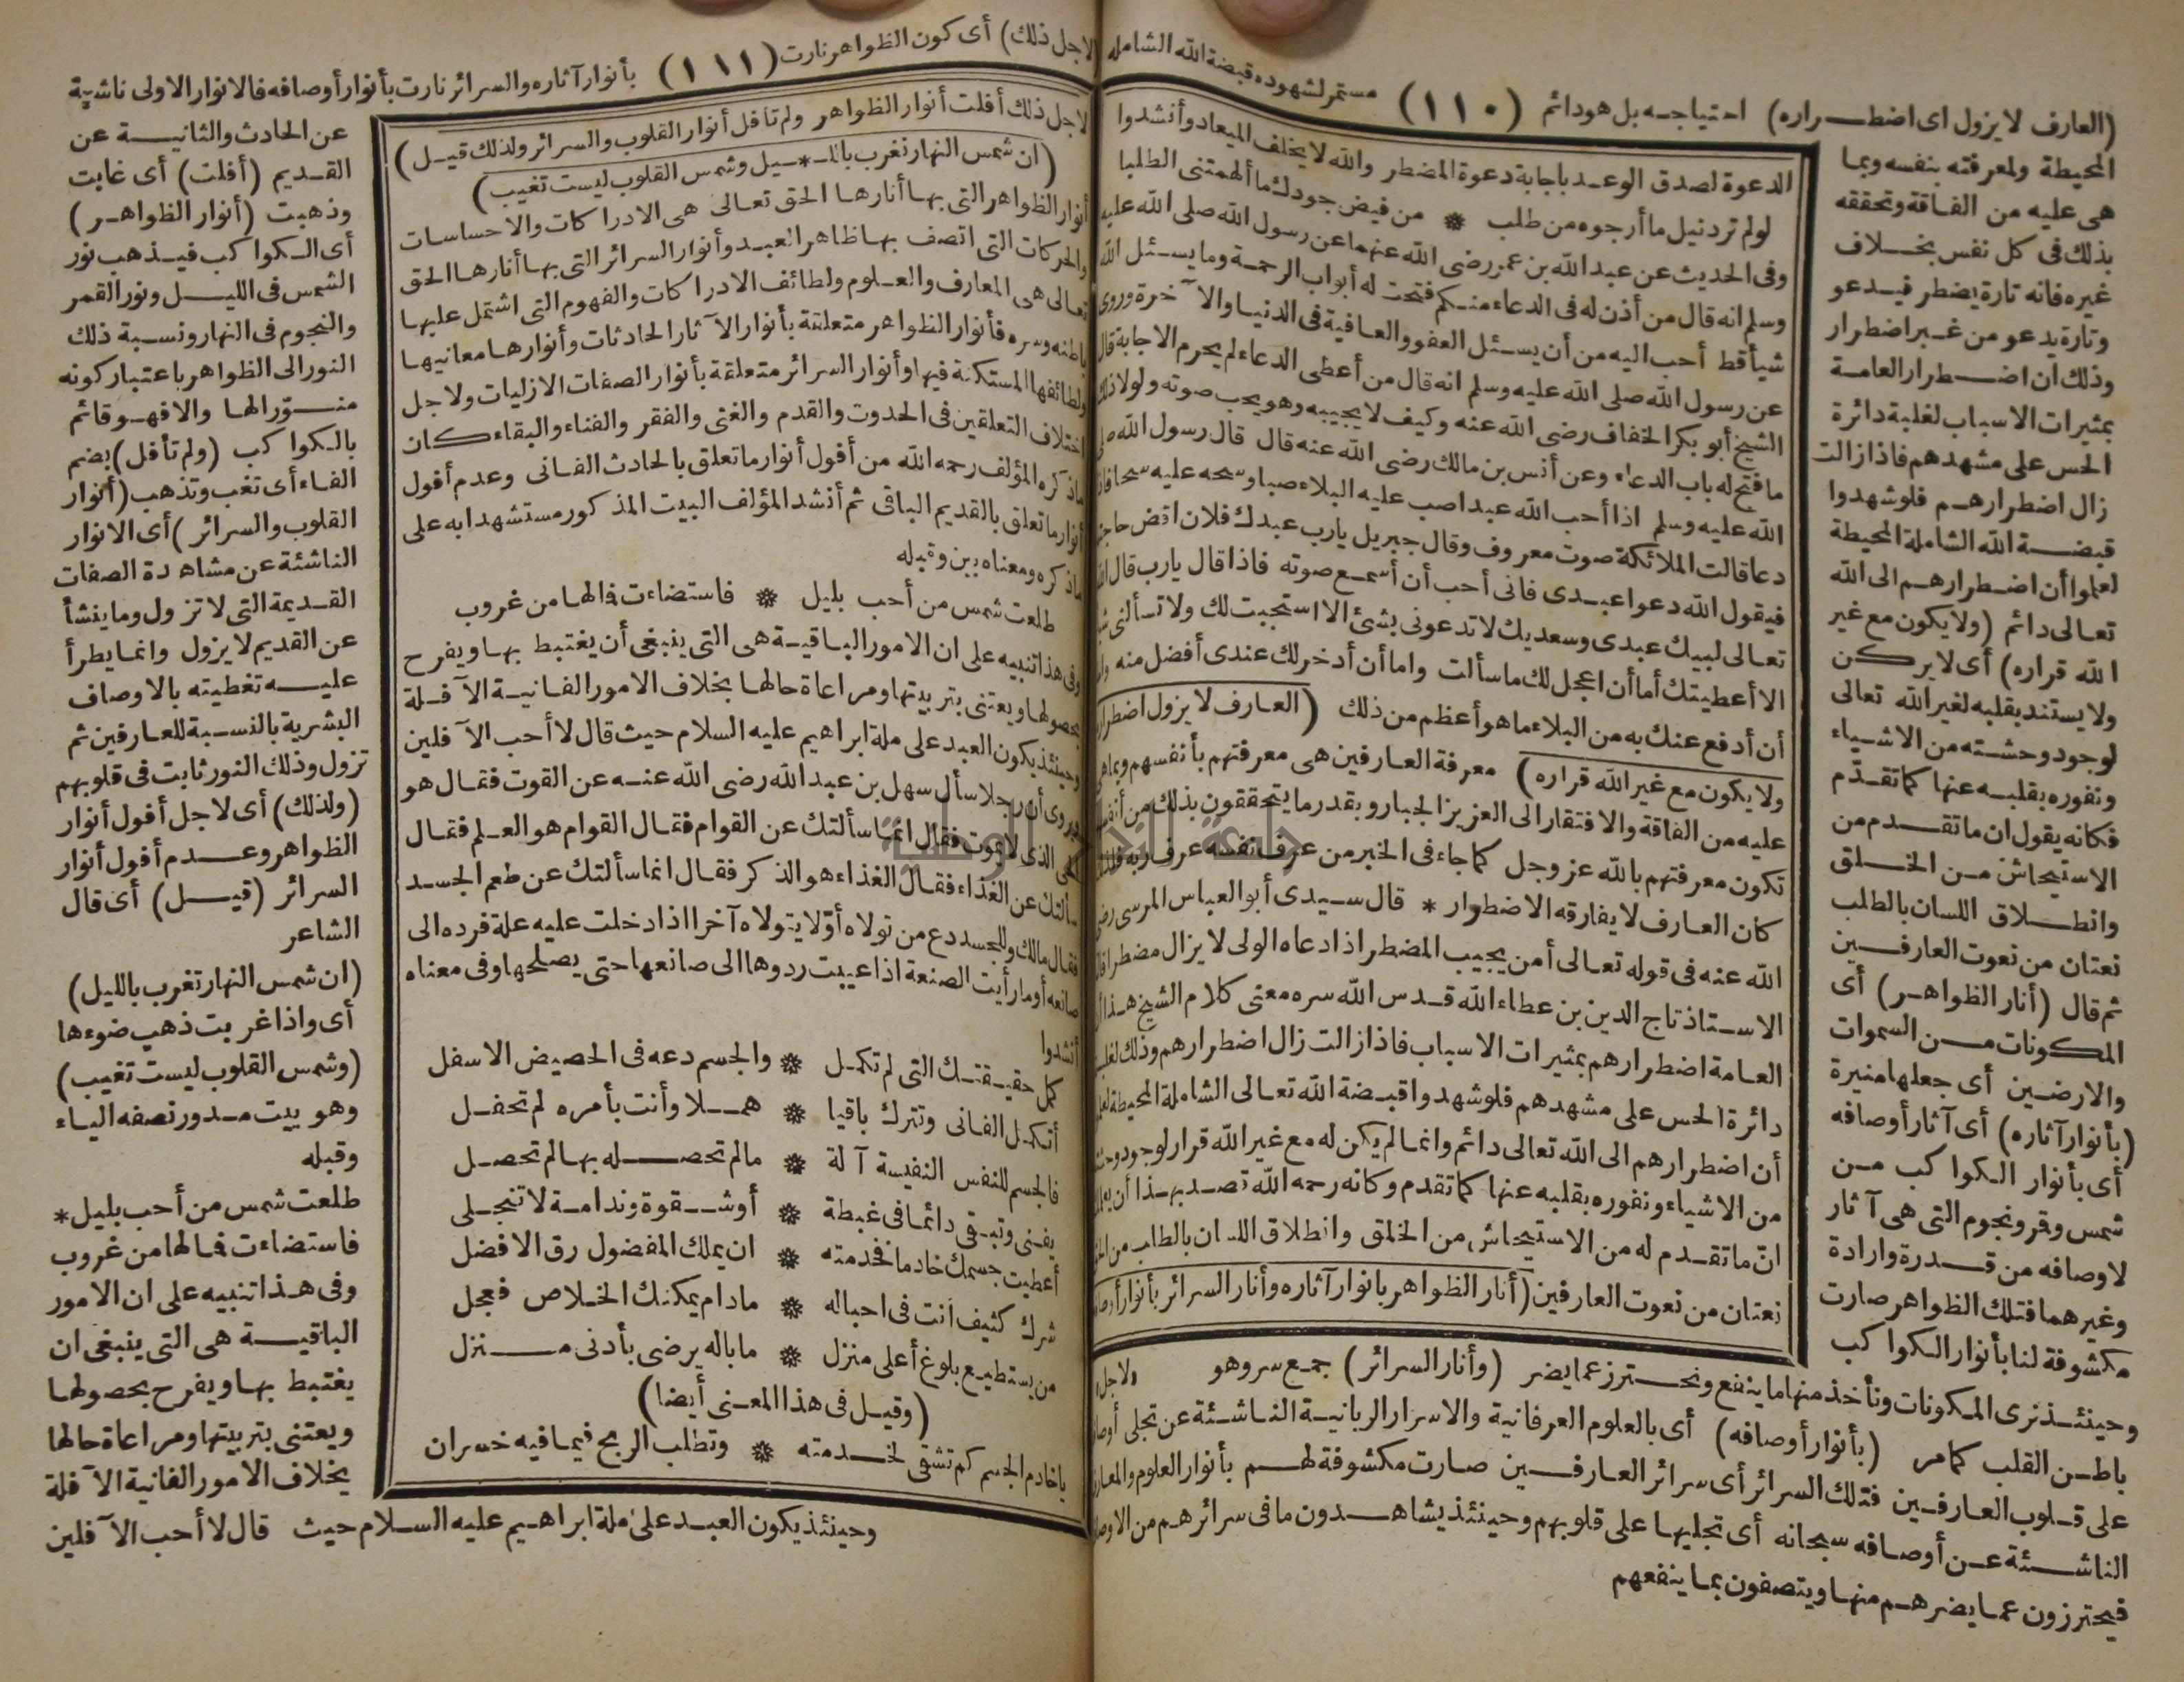 (العارف لا يزول اى اضطراره) احتياجه بل هو دائم (١١٠) مستمر لشهوده قبضة الله الشامله
المحيطة ولمعرفته بنفسه وبما
هى عليه من الفاقة وتحققه
بذلك فى كل نفس بخلاف
غيره فانه تارة يضطر فيدعو
وتارة يدعو من غير اضطرار
وذلك ان اضطرار العامة
بمثيرات الاسباب لغلبة دائرة
الحس على مشهدهم فاذا زالت
زال اضطرارهم فلو شهدوا
قبضة الله الشاملة المحيطة
لعلموا أن اضطرارهم الى الله
تعالى دائم (ولا يكون مع غير
الله قراره) أى لا يركن
ولا يستند بقلبه لغير الله تعالى
لوجود وحشته من الاشياء
ونفوره بقلبه عنها كما تقدّم
فكانه يقول ان ما تقدم من
الاستيحاش من الخلق
وانطلاق اللسان بالطلب
نعتان من نعوت العارفين
ثم قال (أنار الظواهر) أى
المكونات من السموات
والارضين أى جعلها منيرة
(بأنوار آثاره) أى آثار أوصافه
أى بأنوار الكواكب من
شمس وقمر ونجوم التى هى آثار
لاوصافه من قدرة وارادة
وغيرهما فتلك الظواهر صارت
مكشوفة لنا بأنوار الكواكب
وحينئذ نرى المكونات ونأخذ منها ما ينفع ونحترز عما يضر (وأنار السرائر) جمع سر وهو
باطن القلب كما مر (بأنوار أوصافه) أى بالعلوم العرفانية والاسرار الربانية الناشئة عن تجلى
على قلوب العارفين فتلك السرائر أى سرائر العارفين صارت مكشوفة لهم بأنوار العلوم
الناشئة عن أوصافه سبحانه أى تجليها على قلوبهم وحينئذ يشاهدون ما فى سرائرهم من
فيحترزون عما يضرهم منها ويتصفون بما ينفعهم
الدعوة لصدق الوعد باجابة دعوة المضطر والله لا يخلف الميعاد وأنشدوا
لو لم ترد نيل ما أرجوه من طلب * من فيض جودك ما ألهمتنى الطلبا
وفى الحديث عن عبد الله بن عمر رضى الله عنهما عن رسول الله صلى الله عليه
وسلم انه قال من أذن له فى الدعاء منكم فتحت له أبواب الرحمة وما يسئل الله
شيأ قط أحب اليه من أن يسئل العفو والعافية فى الدنيا والآخرة وروى
عن رسول الله صلى الله عليه وسلم انه قال من أعطى الدعاء لم يحرم الاجابة قال
الشيخ أبو بكر الخفاف رضى الله عنه وكيف لا يجيبه وهو يحب صوته ولولا ذلك
ما فتح له باب الدعاء وعن أنس بن مالك رضى الله عنه قال قال رسول الله
الله عليه وسلم اذا أحب الله عبدا صب عليه البلاء صبا وسحه عليه سحا
دعا قالت الملائكة صوت معروف وقال جبريل يارب عبدك فلان اقض
فيقول الله دعوا عبدى فانى أحب أن أسمع صوته فاذا قال يارب قال
تعالى لبيك عبدى وسعديك لا تدعونى بشئ الا استجبت لك ولا تسألنى
الا أعطيتك أما أن اعجل لك ما سألت واما أن أدخر لك عندى أفضل منه
أن أدفع عنك به من البلاء ما هو أعظم من ذلك (العارف لا يزول اضطراره
ولا يكون مع غير الله قراره) معرفة العارفين هى معرفتهم بأنفسهم وبما هى
عليه من الفاقة والافتقار الى العزيز الجبار وبقدر ما يتحققون بذلك من
تكون معرفتهم بالله عز وجل كما جاء فى الخبر من عرف نفسه عرف ربه
كان العارف لا يفارقه الاضطرار * قال سيدى أبو العباس المرسى رضى
الله عنه فى قوله تعالى أمن يجيب المضطر اذا دعاه الولى لا يزال مضطرا
الاستاذ تاج الدين بن عطاء الله قدس الله سره معنى كلام الشيخ هذا
العامة اضطرارهم بمثيرات الاسباب فاذا زالت زال اضطرارهم وذلك لغلبة
دائرة الحس على مشهدهم فلو شهدوا قبضة الله تعالى الشاملة المحيطة
أن اضطرارهم الى الله تعالى دائم وانما لم يكن له مع غير الله قرار لوجود
من الاشياء ونفوره بقلبه عنها كما تقدم وكانه رحمه الله قصد بهذا أن
انّ ما تقدم له من الاستيحاش من الخلق وانطلاق اللسان بالطلب
نعتان من نعوت العارفين (أنار الظواهر بانوار آثاره وأنار السرائر بأنوار
لاجل ذلك) أى كون الظواهر نارت (١١١) بأنوار آثاره والسرائر نارت بأنوار أوصافه فالانوار الاولى ناشية
لاجل ذلك أفلت أنوار الظواهر ولم تأفل أنوار القلوب والسرائر ولذلك قيل)
(ان شمس النهار تغرب بالليل * وشمس القلوب ليست تغيب)
أنوار الظواهر التى بها أنارها الحق تعالى هى الادراكات والاحساسات
والحركات التى اتصف بها ظاهر العبد وأنوار السرائر التى بها أنارها الحق
تعالى هى المعارف والعلوم ولطائف الادراكات والفهوم التى اشتمل عليها
باطنه وسره فأنوار الظواهر متعلقة بأنوار الآثار الحادثات وأنوارها معانيها
ولطائفها المستكنة فيها وأنوار السرائر متعلقة بأنوار الصفات الازليات ولاجل
اختلاف التعلقين فى الحدوث والقدم والغنى والفقر والفناء والبقاء كان
ماذكره المؤلف رحمه الله من أفول أنوار ما تعلق بالحادث الفانى وعدم أفول
أنوار ما تعلق بالقديم الباقى ثم أنشد المؤلف البيت المذكور مستشهدا به على
ماذكره ومعناه بين وقبله
طلعت شمس من أحب بليل * فاستضاءت فالها من غروب
وفى هذا تنبيه على ان الامور الباقية هى التى ينبغى أن يغتبط بها ويفرح
بحصولها ويعتنى بتربيتها ومراعاة حالها بخلاف الامور الفانية الآفلة
وحينئذ يكون العبد على ملة ابراهيم عليه السلام حيث قال لا أحب الآفلين
وروى أن رجلا سأل سهل بن عبد الله رضى الله عنه عن القوت فقال هو
الحى الذى لا يموت فقال انما سألتك عن القوام فقال القوام هو العلم فقال
سألتك عن الغذاء فقال الغذاء هو الذكر فقال انما سألتك عن طعم الجسد
فقال مالك وللجسد دع من تولاه أوّلا يتولاه آخرا اذا دخلت عليه علة فرده الى
صانعه أو ما رأيت الصنعة اذا عيبت ردوها الى صانعها حتى يصلحها وفى معناه
أنشدوا
كمل حقيقتك التى لم تكمل * والجسم دعه فى الحضيض الاسفل
أتكمل الفانى وتترك باقيا * هملا وأنت بأمره لم تحفل
فالجسم للنفس النفيسة آلة * مالم تحصله بها لم تحصل
يفنى وتبقى دائما فى غبطة * أوشقوة وندامة لا تنجلى
أعطيت جسمك خادما فخدمته * ان يملك المفضول رق الافضل
شرك كثيف أنت فى احباله * مادام يمكنك الخلاص فعجل
من يستطيع بلوغ أعلى منزل * ما باله يرضى بأدنى منزل
(وقيل فى هذا المعنى أيضا)
ياخادم الجسم كم تشقى لخدمته * وتطلب الربح فيما فيه خسران
عن الحادث والثانية عن
القديم (أفلت) أى غابت
وذهبت (أنوار الظواهر)
أى الكواكب فيذهب نور
الشمس فى الليل ونور القمر
والنجوم فى النهار ونسبة ذلك
النور الى الظواهر باعتبار كونه
منوّرا لها والا فهو قائم
بالكواكب (ولم تأفل) بضم
الفاء أى تغب وتذهب (أنوار
القلوب والسرائر) أى الانوار
الناشئة عن مشاهدة الصفات
القديمة التى لا تزول وما ينشأ
عن القديم لا يزول وانما يطرأ
عليه تغطيته بالاوصاف
البشرية بالنسبة للعارفين ثم
تزول وذلك النور ثابت فى قلوبهم
(ولذلك) أى لاجل أفول أنوار
الظواهر وعدم أفول أنوار
السرائر (قيل) أى قال
الشاعر
(ان شمس النهار تغرب بالليل)
أى واذا غربت ذهب ضوءها
(وشمس القلوب ليست تغيب)
وهو بيت مدور نصفه الياء
وقبله
طلعت شمس من أحب بليل *
فاستضاءت فمالها من غروب
وفى هذا تنبيه على ان الامور
الباقية هى التى ينبغى ان
يغتبط بها ويفرح بحصولها
ويعتنى بتربيتها ومراعاة حالها
بخلاف الامور الفانية الآفلة
وحينئذ يكون العبد على ملة ابراهيم عليه السلام حيث قال لا أحب الآفلين